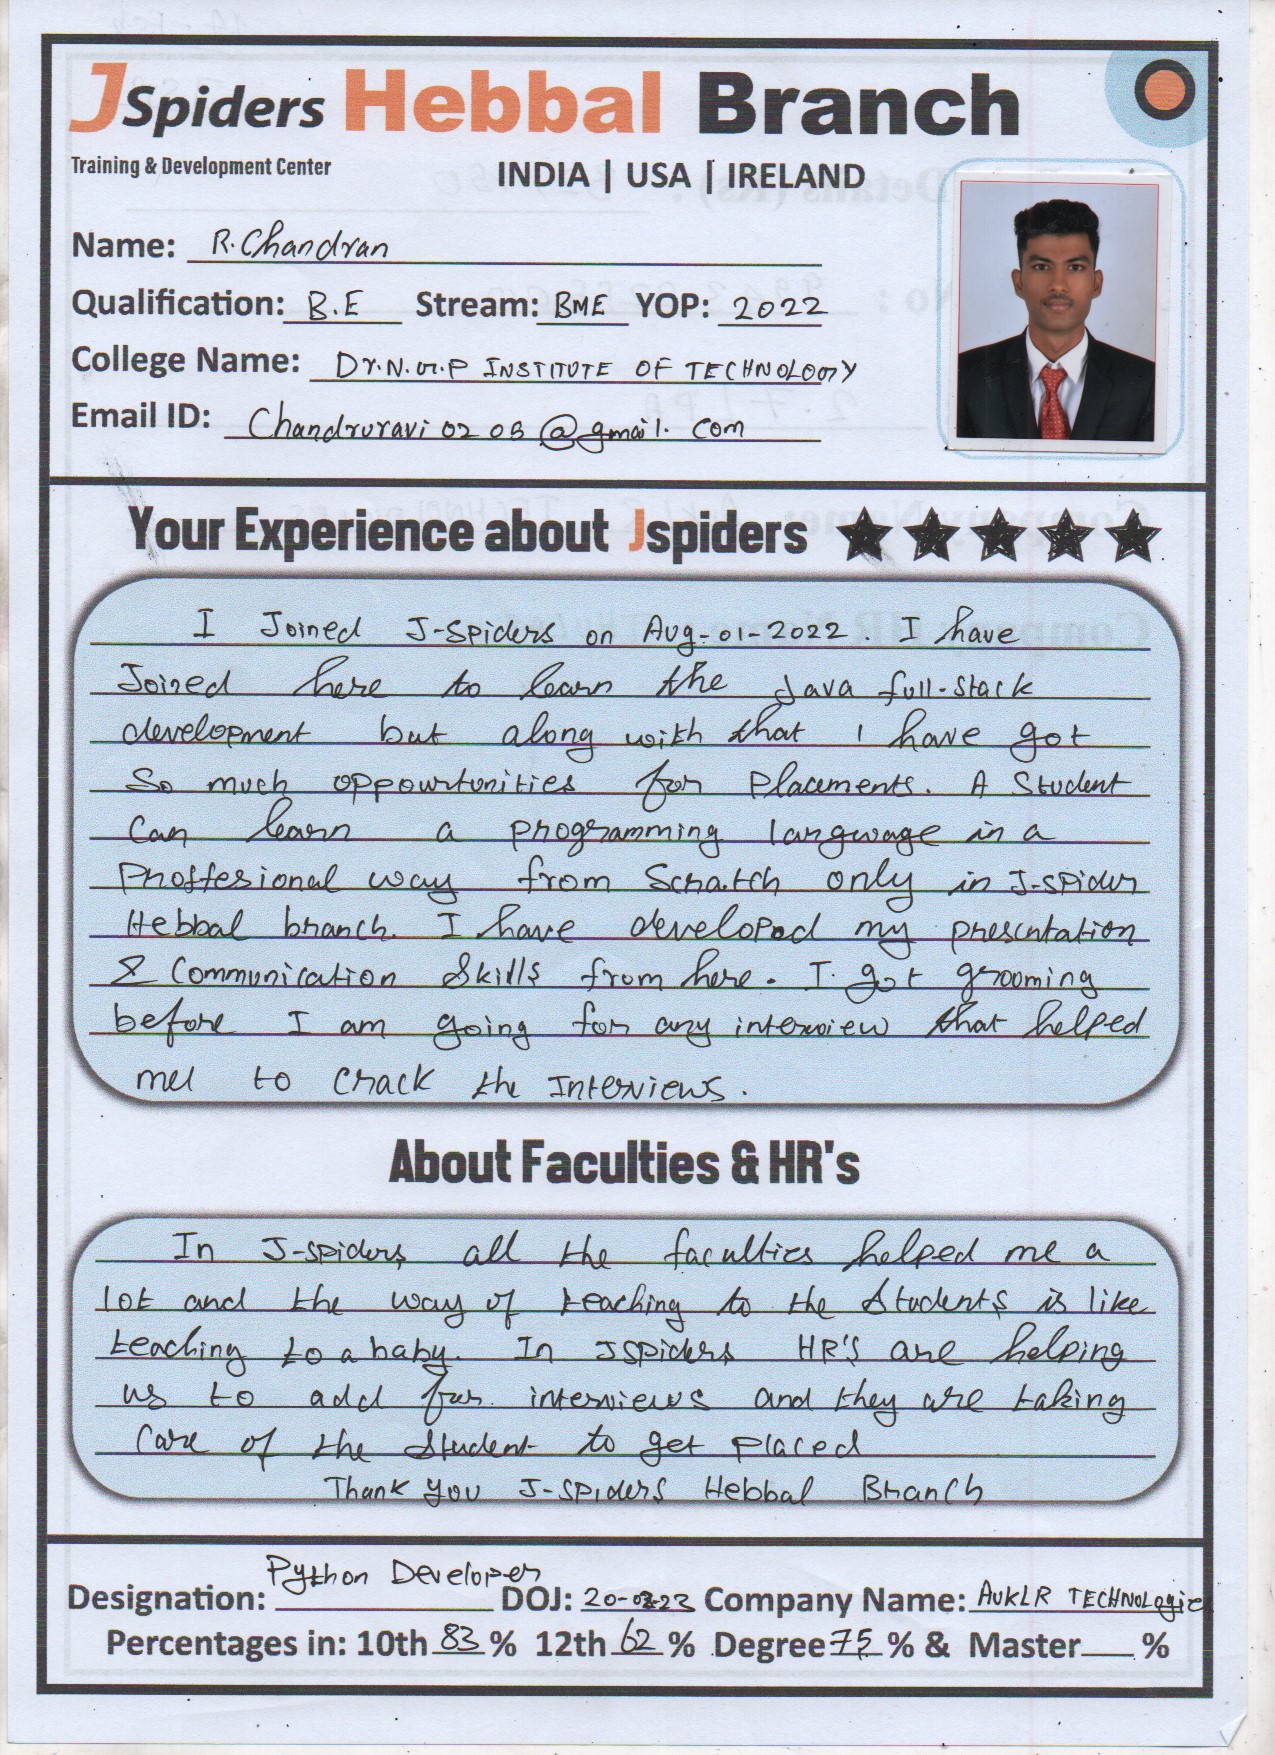 JSpiders Hebbal Branch
Training & Development Center
INDIA | USA | IRELAND
Name: R. Chandran
Qualification: B.E Stream: BME YOP: 2022
College Name: Dr. N.G.P INSTITUTE OF TECHNOLOGY
Email ID: Chandruravi0203@gmail.com
Your Experience about Jspiders
I Joined J-Spiders on Aug-01-2022. I have
Joined here to learn the Java full-stack
development but along with that I have got
So much oppourtunities for Placements. A Student
Can learn a programming language in a
Proffesional way from Scratch only in J-spider
Hebbal branch. I have developed my presentation
& Communication Skills from here. I got grooming
before I am going for any interview that helped
me to crack the Interviews.
About Faculties & HR's
In J-spiders, all the faculties helped me a
lot and the way of teaching to the Students is like
teaching to a baby. In JSpiders HR'S are helping
us to add for interviews and they are taking
Care of the Student to get placed
Thank you J-SPIDERS Hebbal Branch
Designation: Python Developer DOJ: 20- -23 Company Name: AUKLR TECHNOLogie
Percentages in: 10th 83 % 12th 62 % Degree 75 % & Master %